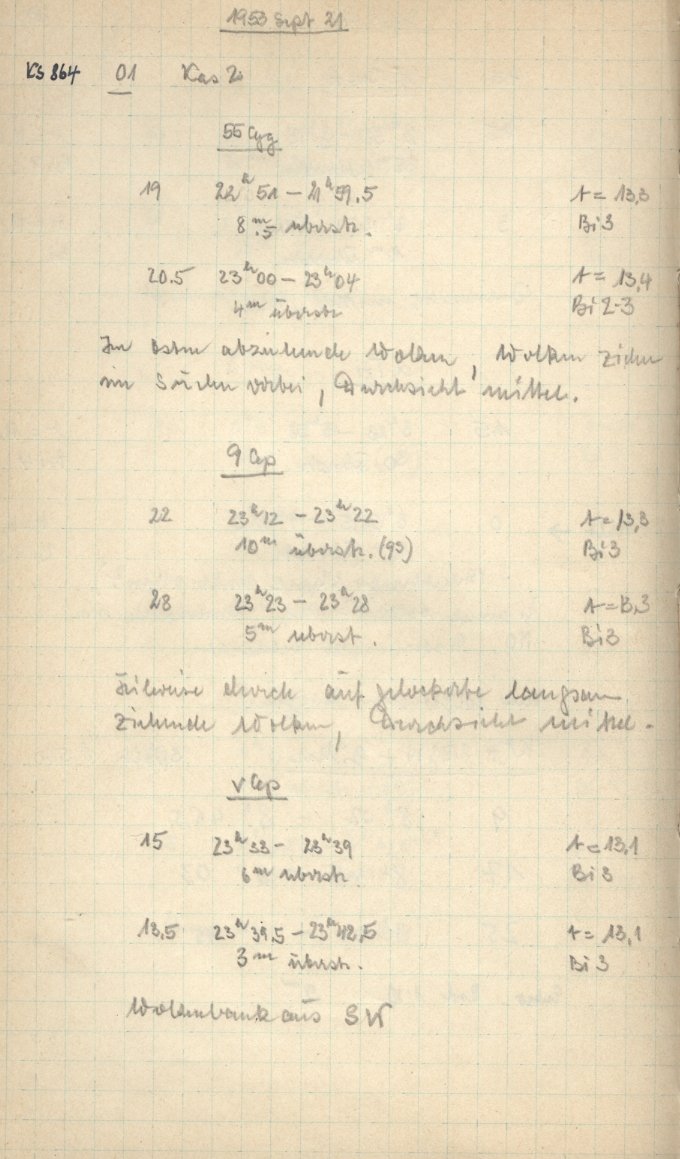 1953 Sept 21
KS 864 01 Kas 2
55 Cyg
19 22ʰ51 – 22ʰ59.5 t = 13,3
8ᵐ.5 überstr. Bi 3
20.5 23ʰ00 – 23ʰ04 t = 13,4
4ᵐ überstr Bi 2-3
Im Osten abziehende Wolken, Wolken ziehn
im Süden vorbei, Durchsicht mittel.
9 Cep
22 23ʰ12 – 23ʰ22 t = 13,3
10ᵐ überstr. (93) Bi 3
28 23ʰ23 – 23ʰ28 t = 13,3
5ᵐ überst. Bi 3
Teilweise durch aufgelockerte langsam
ziehende Wolken, Durchsicht mittel.
ν Cep
15 23ʰ33 – 23ʰ39 t = 13,1
6ᵐ überstr. Bi 3
13,5 23ʰ39,5 – 23ʰ42,5 t = 13,1
3ᵐ überstr. Bi 3
Wolkenbank aus SW